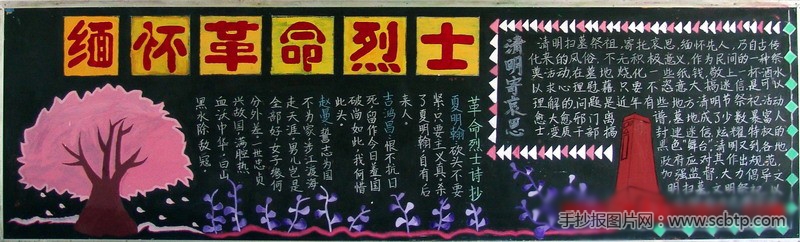 缅怀革命烈士
革命烈士诗抄
夏明翰:砍头不要
紧,只要主义真,杀
了夏明翰,自有后
来人。
吉鸿昌:恨不抗日
死,留作今日羞,国
破尚如此,我何惜
此头。
赵一曼:誓志为国
不为家,涉江渡海
走天涯,男儿岂是
全都好,女子缘何
分外差,一世忠贞
兴故国,满腔热
血沃中华,白山
黑水除敌寇,
清明寄哀思
清明扫墓祭祖,寄托哀思,缅怀先人,乃自古传
化来的风俗,不无积极意义,作为民间的一种祭
奠活动,在墓地,烧化一些纸钱,敬上一杯酒水
以求心理慰藉,只要不恣意大搞迷信是可以
理解的问题是近年有些地方清明节祭祀活动
愈大愈邪门离谱,墓地成了少数暴富人
士,变质干部搞封建迷信,炫耀特权的
黑色"舞台",清明又到各地
政府应对其作出规范,
加强监督,大力倡导文
明扫墓,文明祭祀,以
手抄报图片网:www.scbtp.com